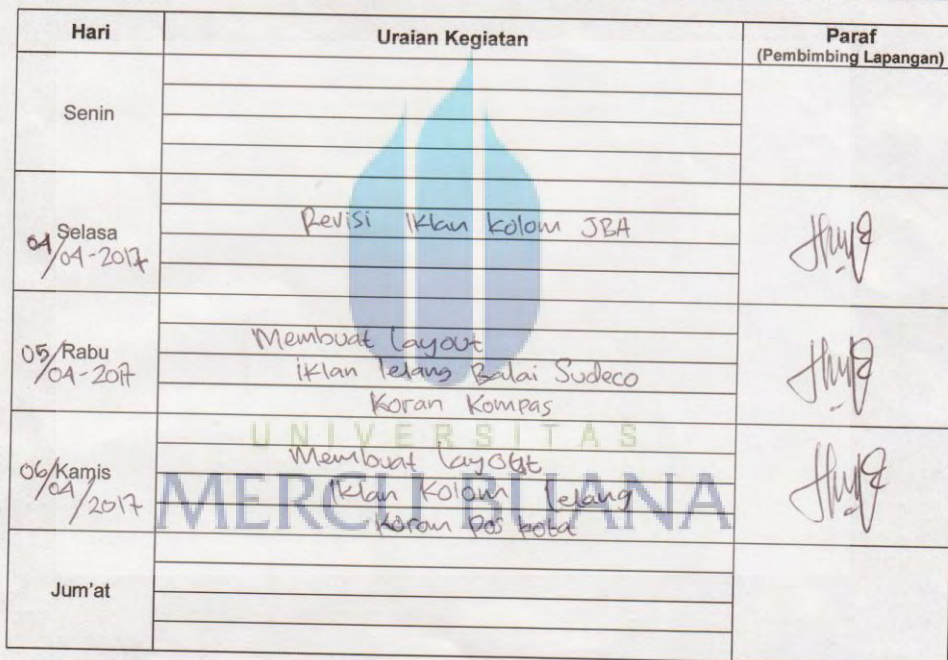 Hari Uraian Kegiatan Paraf
(Pembimbing Lapangan)
Senin
Selasa
04/04-2017
Revisi Iklan kolom JBA
05/Rabu
04-2017
Membuat layout
iklan lelang Balai Sudeco
Koran Kompas
UNIVERSITAS
06/Kamis
04/2017
Membuat layout
Iklan Kolom lelang
Koran pos kota
MERCU BUANA
Jum'at